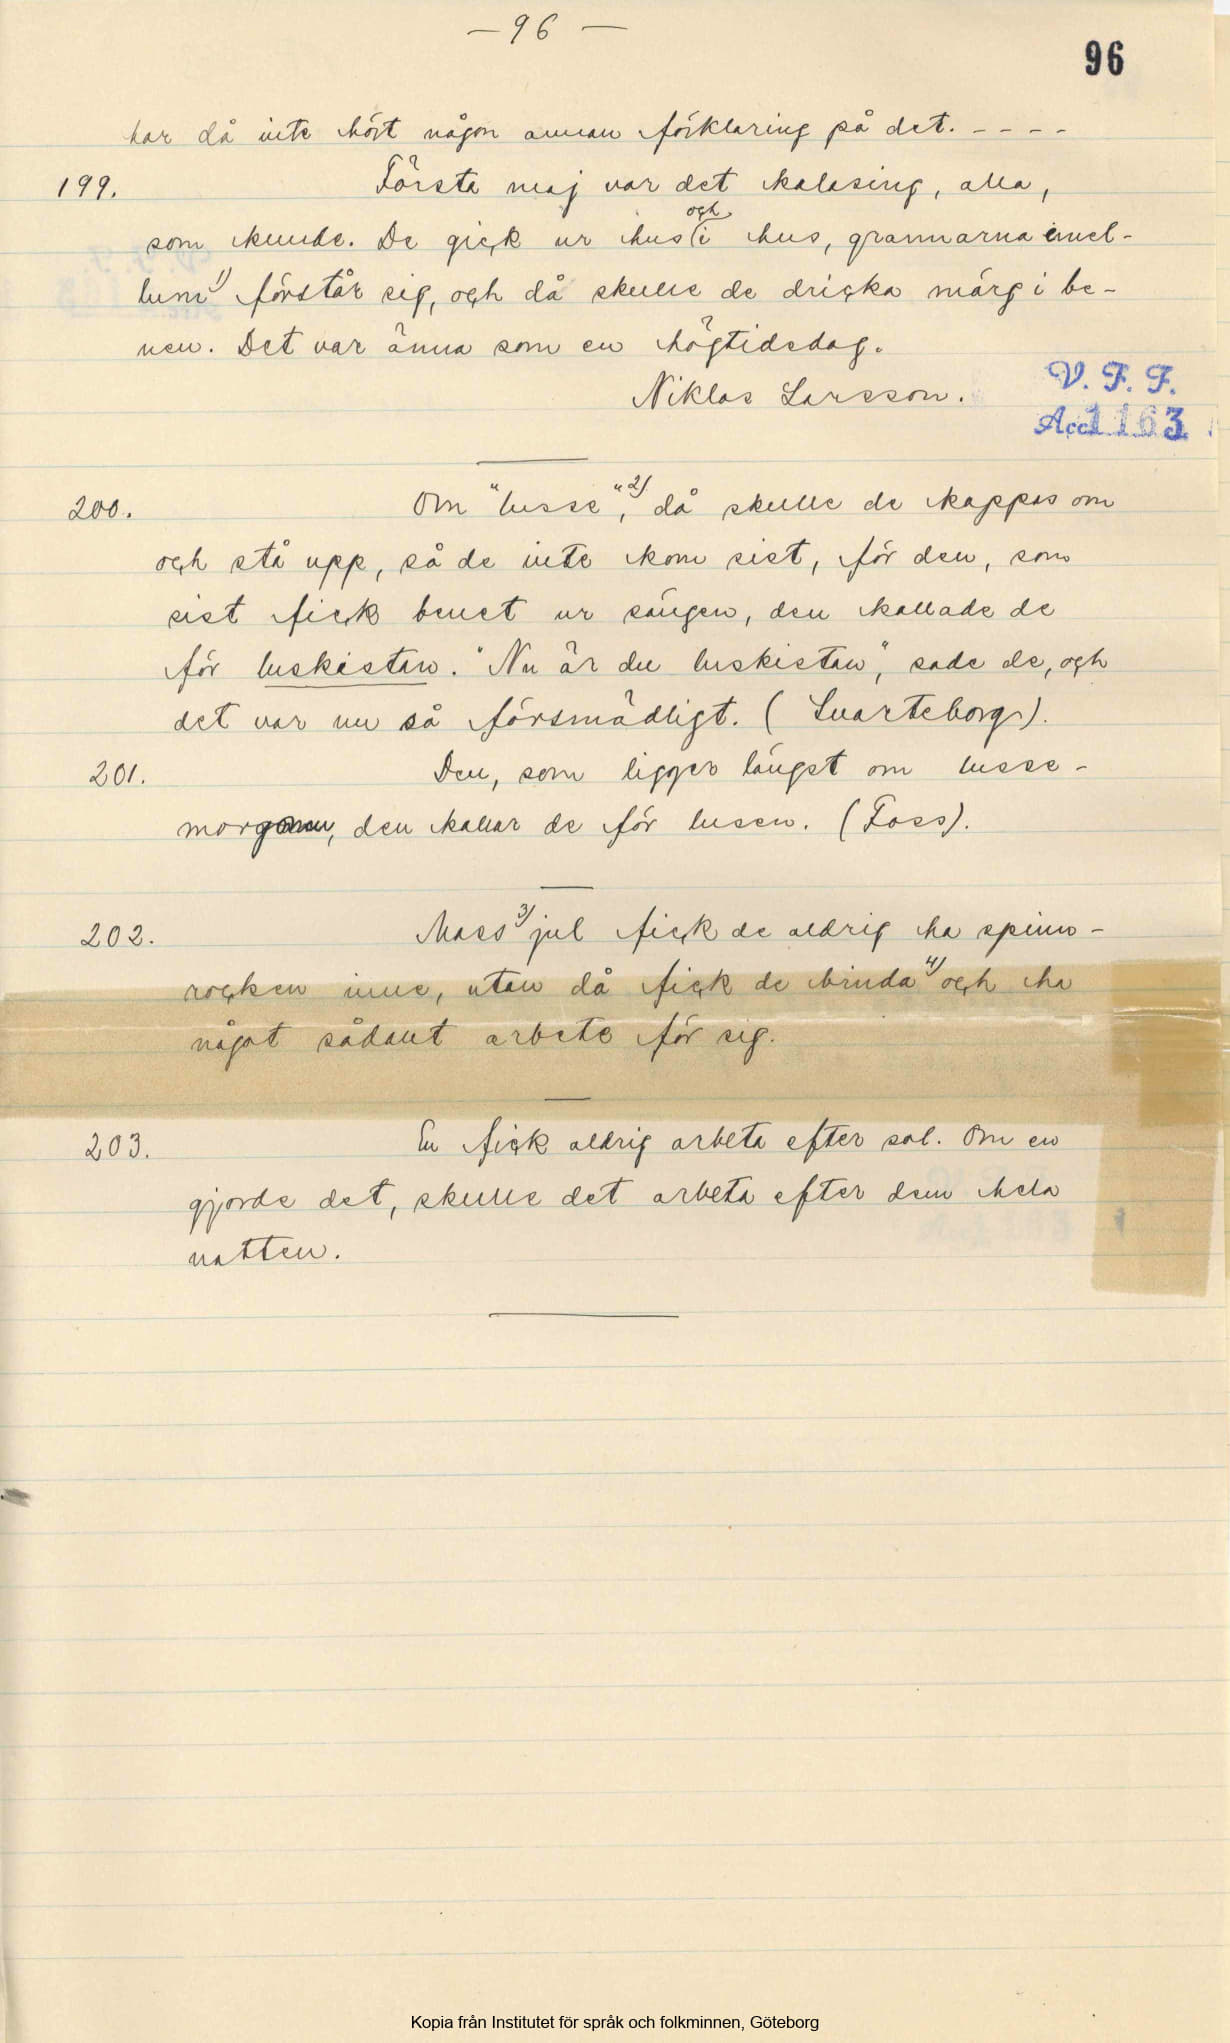 — 96 —
96
har då inte hört någon annan förklaring på det. - - - -
199. Första maj var det kalasing, alla,
som kunde. De gick ur hus och i hus, grannarna imel-
lum 1) förstår sig, och då skulle de dricka märg i be-
nen. Det var änna som en högtidsdag.
Niklas Larsson.
V. F. F.
Acc. 1163
200. Om "lusse", 2) då skulle de kappas om
och stå upp, så de inte kom sist, för den, som
sist fick benet ur sängen, den kallade de
för luskistan. "Nu är du luskistan", sade de, och
det var nu så försmädligt. (Svarteborg).
201. Den, som ligger längst om lusse-
morgonen, den kallar de för lusen. (Foss).
202. Mass 3) jul fick de aldrig ha spinn-
rocken inne, utan då fick de binda 4) och ha
något sådant arbete för sig.
203. En fick aldrig arbeta efter sol. Om en
gjorde det, skulle det arbeta efter dem hela
natten.
Kopia från Institutet för språk och folkminnen, Göteborg